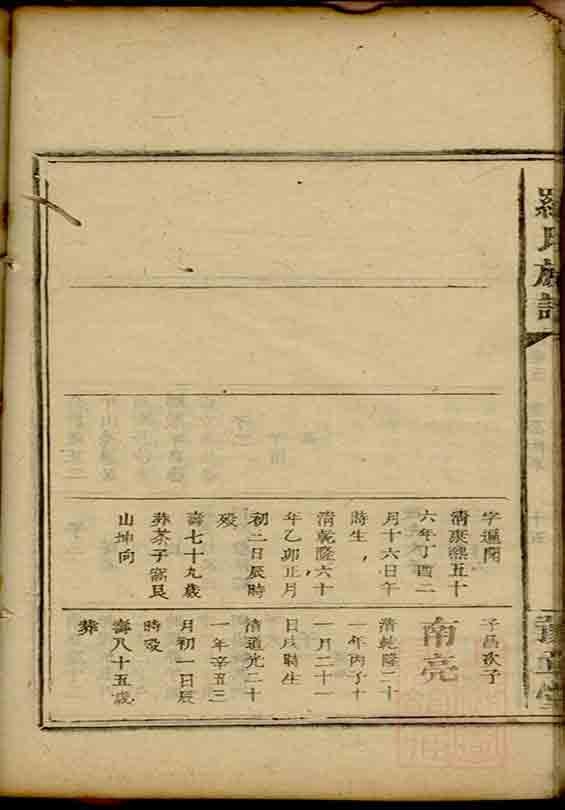 羅氏族譜
字暹閣
清康熙五十
六年丁酉二
月十六日午
時生，
清乾隆六十
年乙卯正月
初二日辰時
歿
壽七十九歲
葬茶子窩艮
山坤向
子昌次子
南亮
清乾隆二十
一年丙子十
一月二十一
日戌時生
清道光二十
一年辛丑三
月初一日辰
時歿
壽八十五歲
葬